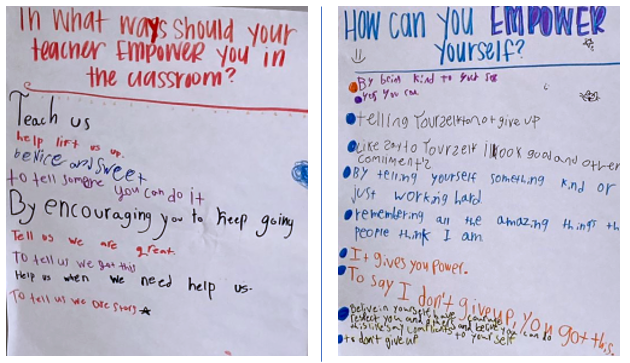 In What Ways Should your
teacher EMPOWER you in
the classroom?
Teach us
help lift us up.
be Nice and Sweet
to tell someone you can do it
By encouraging you to keep going
Tell us we are great.
To tell us we got this
Help us when we need help us.
To tell us we are stars
How can you EMPOWER
yourself?
By bein kind to your
yes you can
telling Yourzelf to not give up
Like zay to Yourzelf I look good and other
comliment'z
By telling yourself something kind or
just working hard
remembering all the amazing things th
people think I am
It gives you Power.
To say I don't give up, You got this.
Belive in yourself have courage
respect you and
this like say compliments and belive you can do
to your self
to don't give up